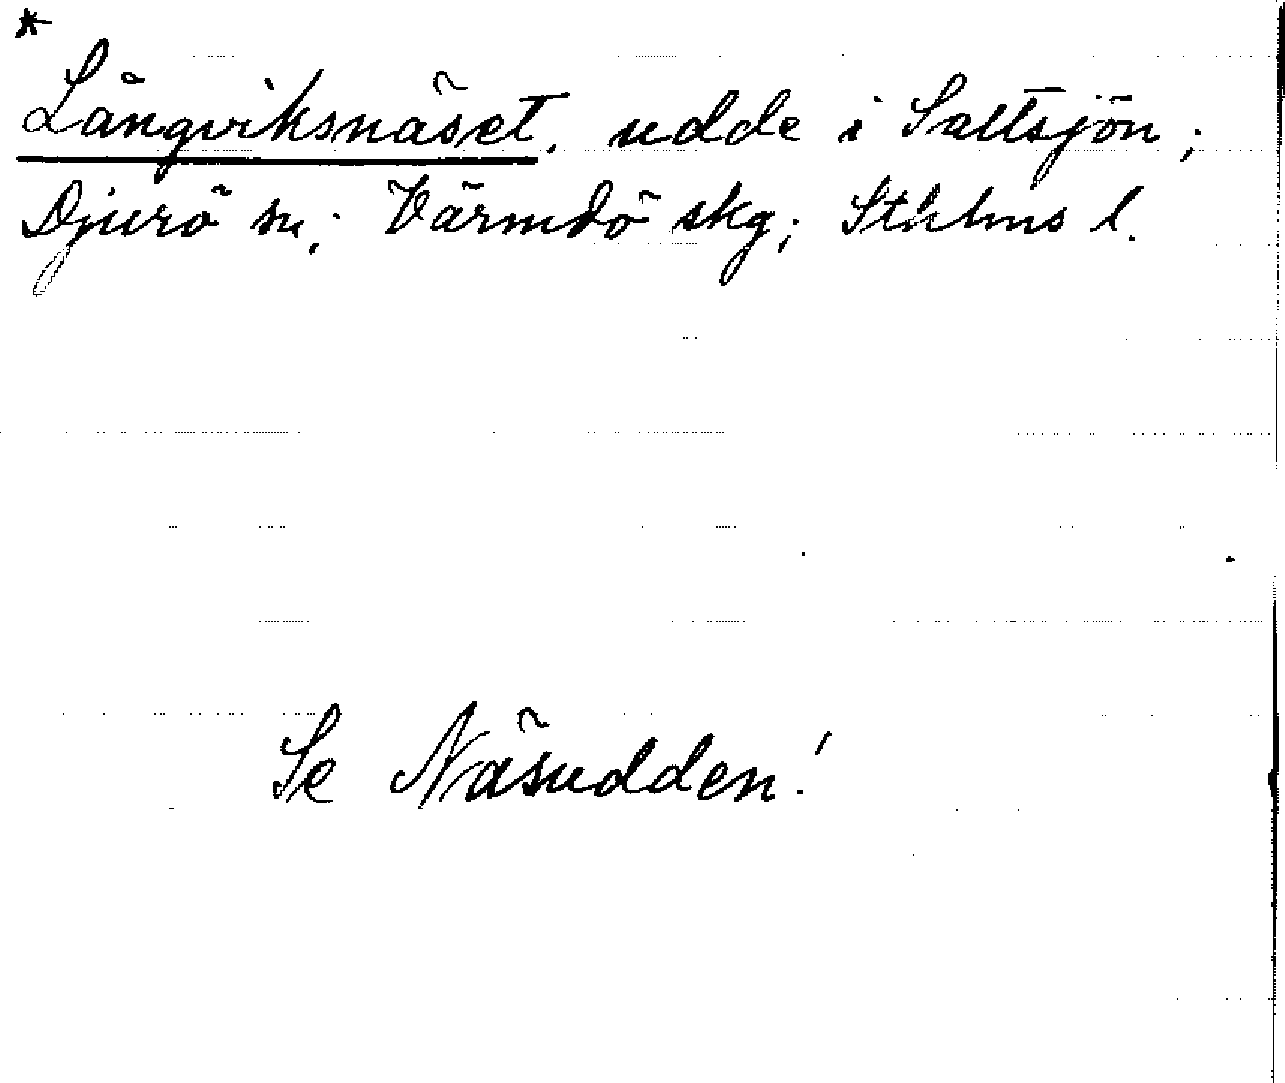 *
Långviksnäset, udde i Saltsjön;
Djurö sn; Värmdö skg; Sthlms l.
Se Näsudden!